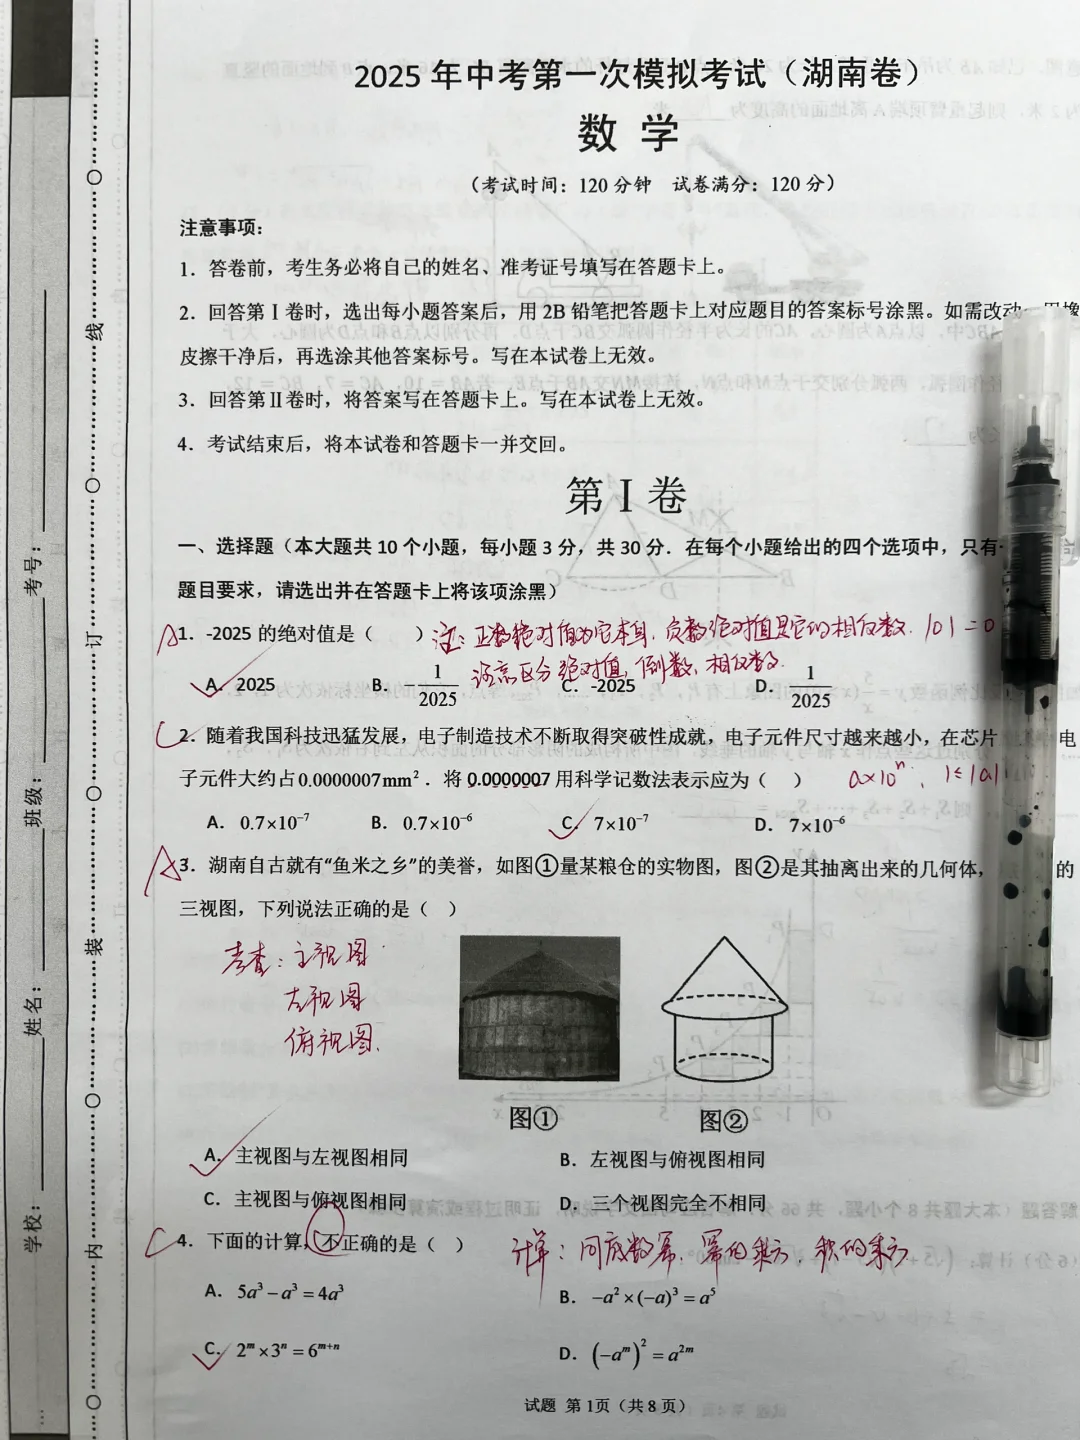 2025 年中考第一次模拟考试（湖南卷）
数 学
（考试时间：120 分钟 试卷满分：120 分）
注意事项：
1．答卷前，考生务必将自己的姓名、准考证号填写在答题卡上。
2．回答第Ⅰ卷时，选出每小题答案后，用 2B 铅笔把答题卡上对应题目的答案标号涂黑。如需改动
皮擦干净后，再选涂其他答案标号。写在本试卷上无效。
3．回答第Ⅱ卷时，将答案写在答题卡上。写在本试卷上无效。
4．考试结束后，将本试卷和答题卡一并交回。
第Ⅰ卷
一、选择题（本大题共 10 个小题，每小题 3 分，共 30 分．在每个小题给出的四个选项中，只有
题目要求，请选出并在答题卡上将该项涂黑）
A 1．-2025 的绝对值是（ ） 注：正数绝对值为它本身，负数绝对值是它的相反数．|0|=0
注意区分绝对值，倒数，相反数．
A．2025 B．-1/2025 C．-2025 D．1/2025
C 2．随着我国科技迅猛发展，电子制造技术不断取得突破性成就，电子元件尺寸越来越小，在芯片 电
子元件大约占0.0000007mm²．将 0.0000007 用科学记数法表示应为（ ） a×10ⁿ； 1≤|a|
A．0.7×10⁻⁷ B．0.7×10⁻⁶ C．7×10⁻⁷ D．7×10⁻⁶
A 3．湖南自古就有“鱼米之乡”的美誉，如图①量某粮仓的实物图，图②是其抽离出来的几何体， 的
三视图，下列说法正确的是（ ）
考查：主视图
左视图
俯视图．
图① 图②
A．主视图与左视图相同 B．左视图与俯视图相同
C．主视图与俯视图相同 D．三个视图完全不相同
C 4．下面的计算，不正确的是（ ） 计算：同底数幂，幂的乘方，积的乘方
A．5a³−a³=4a³ B．−a²×(−a)³=a⁵
C．2ᵐ×3ⁿ=6ᵐ⁺ⁿ D．(−aᵐ)²=a²ᵐ
试题 第 1页（共 8 页）
学校： 姓名： 班级： 考号：
内 装 订 线